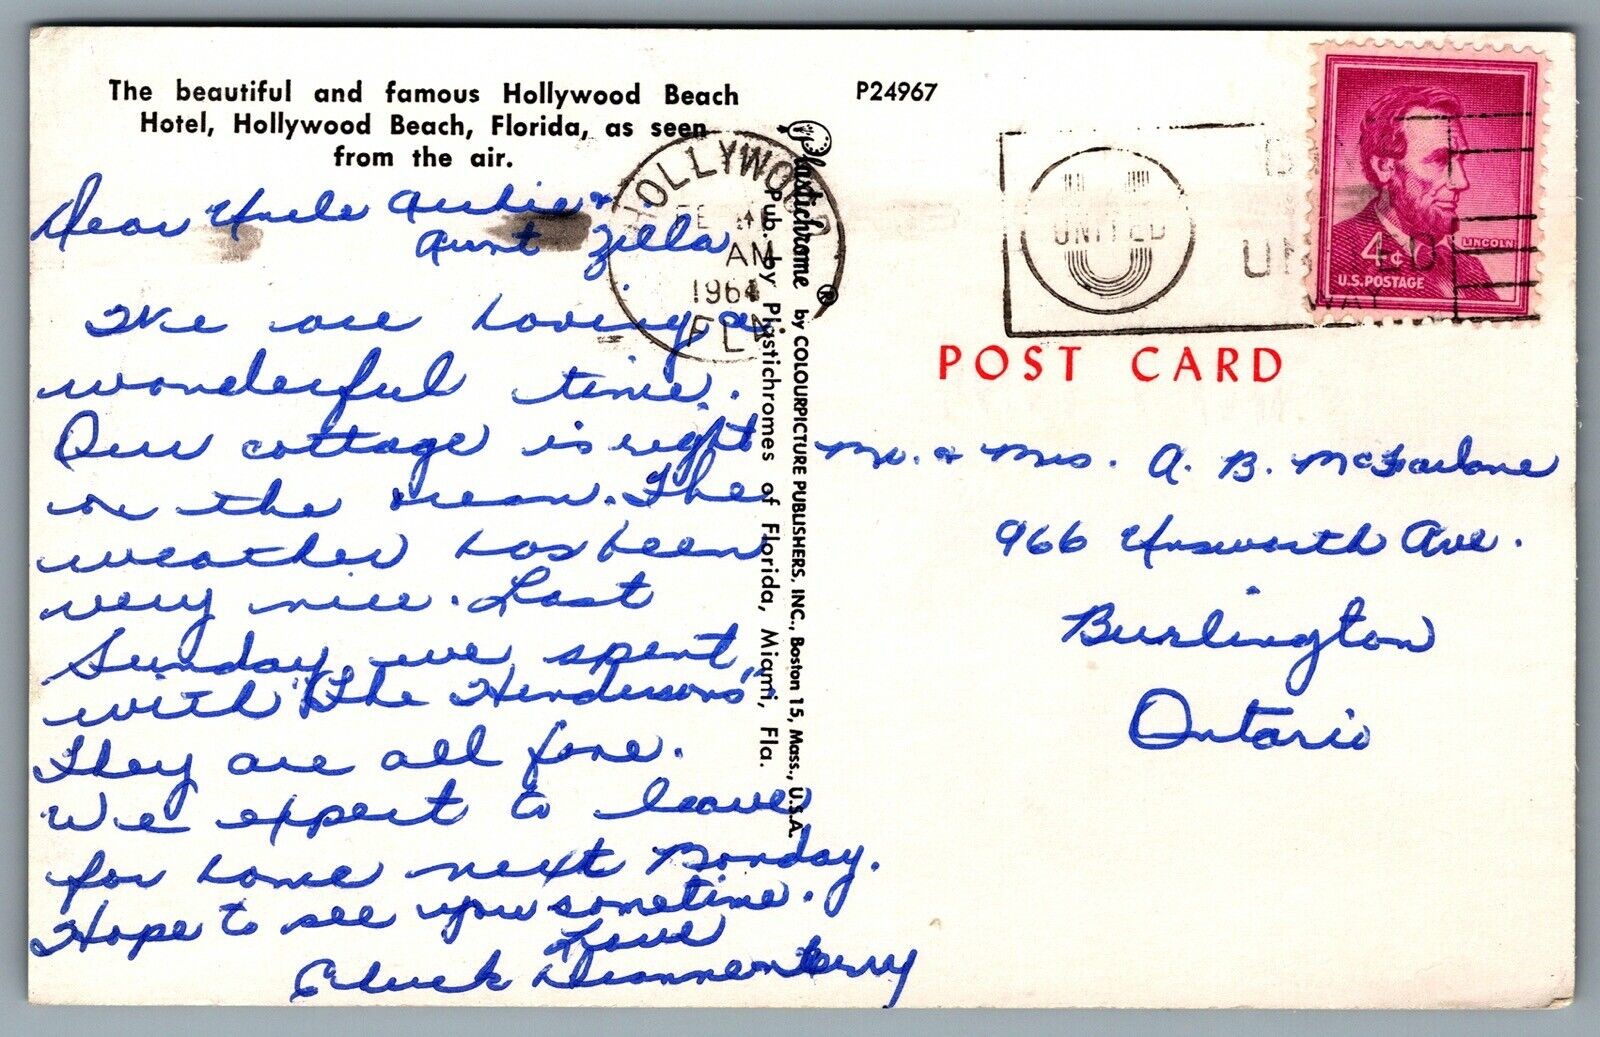 The beautiful and famous Hollywood Beach
Hotel, Hollywood Beach, Florida, as seen
from the air.
P24967
Dear Uncle Archie &
Aunt Zella
We are having a
wonderful time.
Our cottage is right
on the ocean. The
weather has been
very nice. Last
Sunday we spent
with "The Hendersons"
They are all fine.
We expect to leave
for home next Monday.
Hope to see you sometime.
Love
Chuck Dianne
Terry
HOLLYWOOD
FE
AM
1964
FLA
Plastichrome ® by COLOURPICTURE PUBLISHERS, INC., Boston 15, Mass., U.S.A.
Pub. by Plastichromes of Florida, Miami, Fla.
UNITED
WAY
4¢
LINCOLN
U.S. POSTAGE
POST CARD
Mr. & Mrs. A. B. McFarlane
966 Unsworth Ave.
Burlington
Ontario